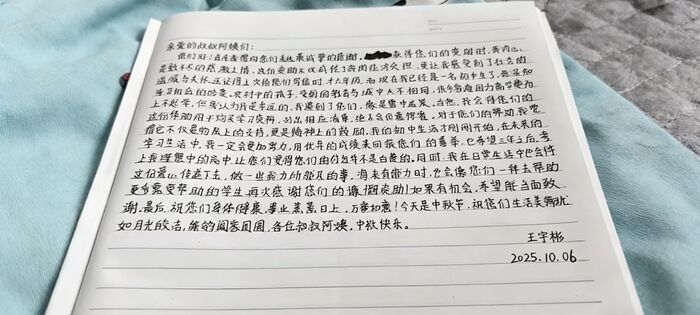 亲爱的叔叔阿姨们：
你们好！首先向你们表达最诚挚的感谢。获得你们的资助时，我内心
是数不尽的感激之情，这份资助不仅减轻了我的经济负担，更让我感受到了社会的
温暖与关怀。还记得上次给你们写信时，才六年级，而现在我已经是一名初中生了，
学习机会的。农村中的孩子，受到的教育与城市大不相同，很多家庭因为高学费而
上不起学，但我认为我是幸运的，我遇到了你们，。当然，我会将你们的
这份帮助用于购买学习资料，列出相应清单，绝不会但意挥霍。对于你们的帮助，我觉
得它不仅是物质上的支持，更是精神上的鼓励。我的初中生活才刚刚开始，在未来的
学习生活中，我一定会更加努力，用优异的成绩来回报你们的善举。也希望三年之后，考
上我理想中的高中，让你们觉得你们的付出并不是白费的。同时，我在日常生活中也会将
这份爱心传递下去，做一些我力所能及的事，将来有能力时，也会像你们一样去帮助
更多需要帮助的学生。再次感谢你们的慷慨资助！如果有机会，希望能当面致
谢。最后，祝你们身体健康，事业蒸蒸日上，万事如意！今天是中秋节，祝你们生活美满犹
如月光皎洁，阖家团圆，各位叔叔阿姨，中秋快乐。
王宇彬
2025.10.06